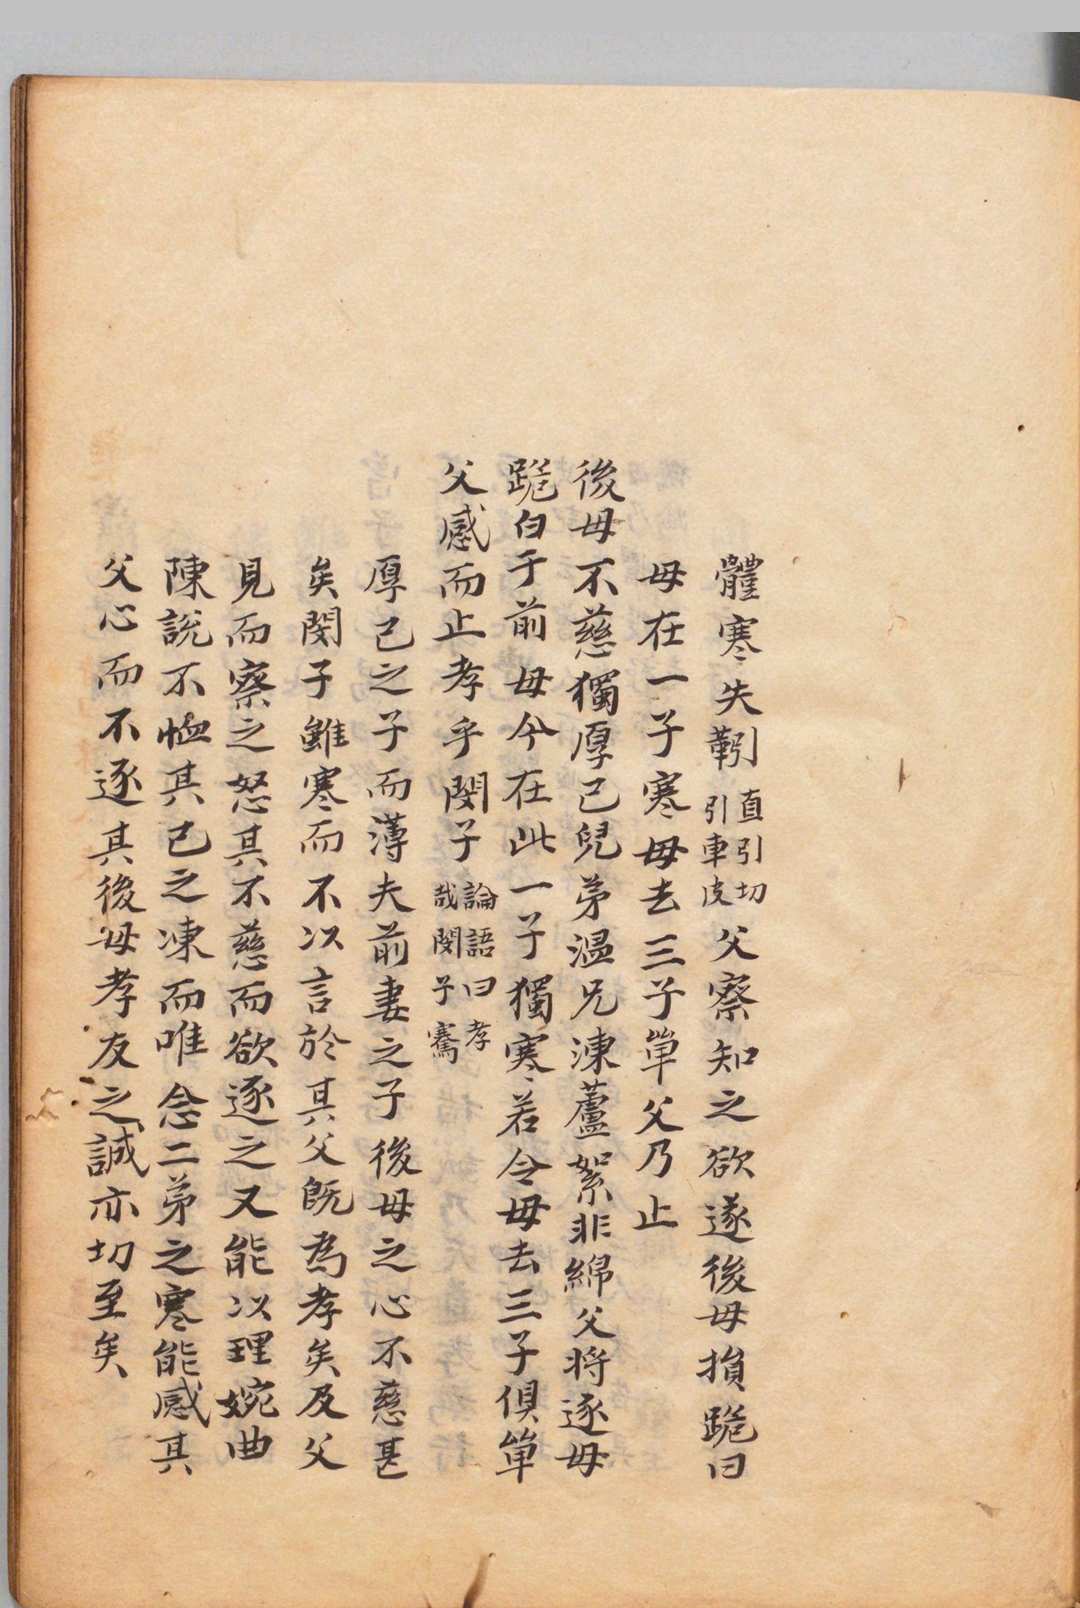 體寒失靷直引切引車皮父察知之欲遂後母損跪曰
母在一子寒母去三子單父乃止
後母不慈獨厚己兒弟溫兄凍蘆絮非綿父將逐母
跪白于前母今在此一子獨寒若令母去三子俱單
父感而止孝乎閔子論語曰孝哉閔子騫
厚己之子而薄夫前妻之子後母之心不慈甚
矣閔子雖寒而不以言於其父既為孝矣及父
見而察之怒其不慈而欲逐之又能以理婉曲
陳說不恤其己之凍而唯念二弟之寒能感其
父心而不逐其後母孝友之誠亦切至矣